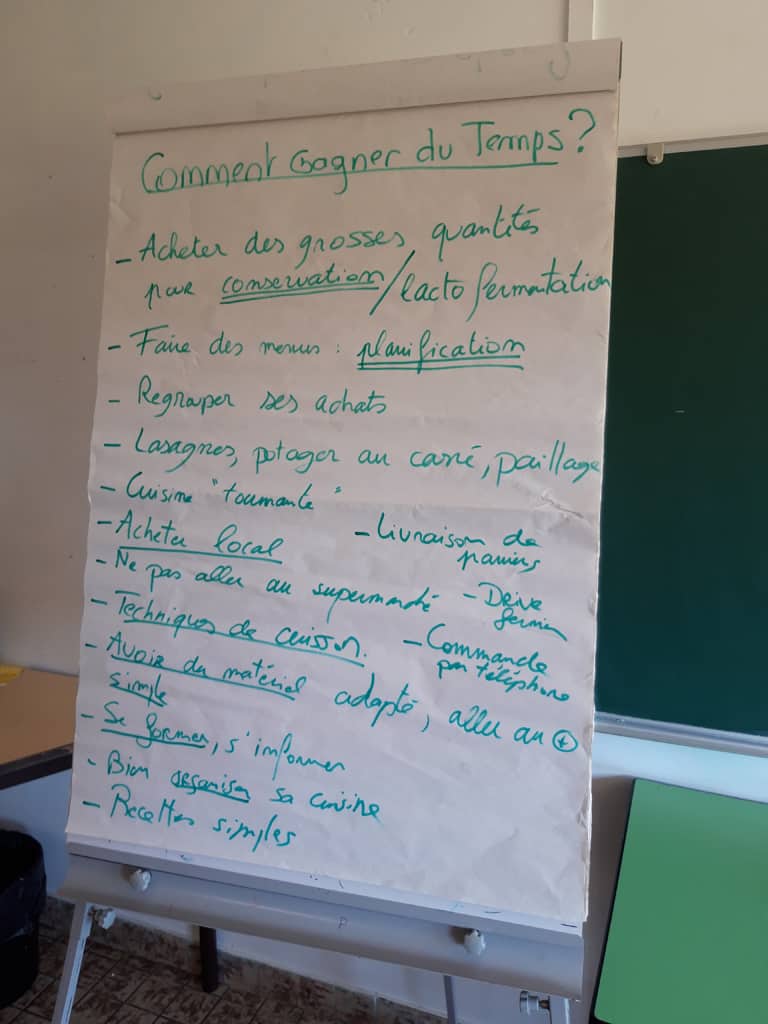 Comment Gagner du Temps ?
- Acheter des grosses quantités
pour conservation/lacto fermentation
- Faire des menus : planification
- Regrouper ses achats
- Lasagnes, potager au carré, paillage
- Cuisine "tournante"
- Acheter local
- Livraison de
paniers
- Ne pas aller au supermarché
- Drive
fermier
- Techniques de cuisson.
- Commande
par téléphone
- Avoir du matériel adapté, aller au +
simple
- Se former, s'informer
- Bien organiser sa cuisine
- Recettes simples